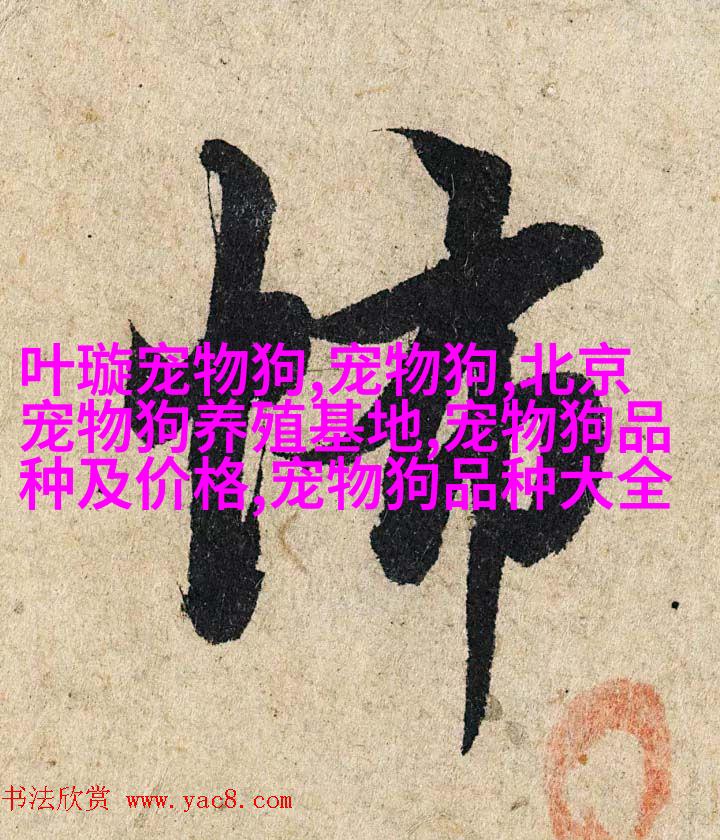 怖
叶璇宠物狗,宠物狗,北京
宠物狗养殖基地,宠物狗品
种及价格,宠物狗品种大全
书法欣赏 www.yac8.com